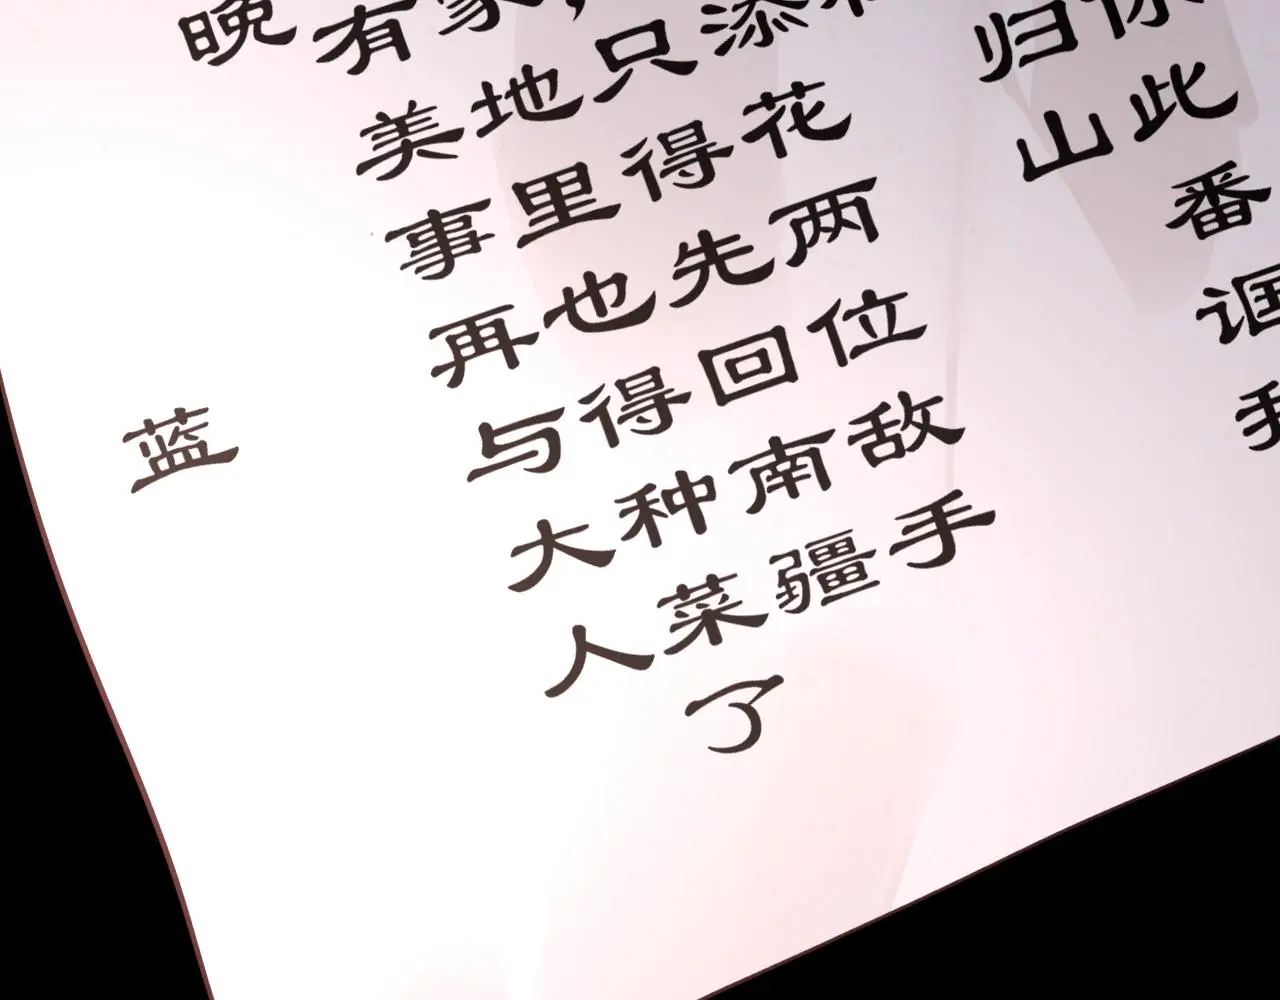 你此番诓我
归山
添花两位敌手
只得先回南疆
家地里也得种菜了
有美事再与大人
晚
蓝